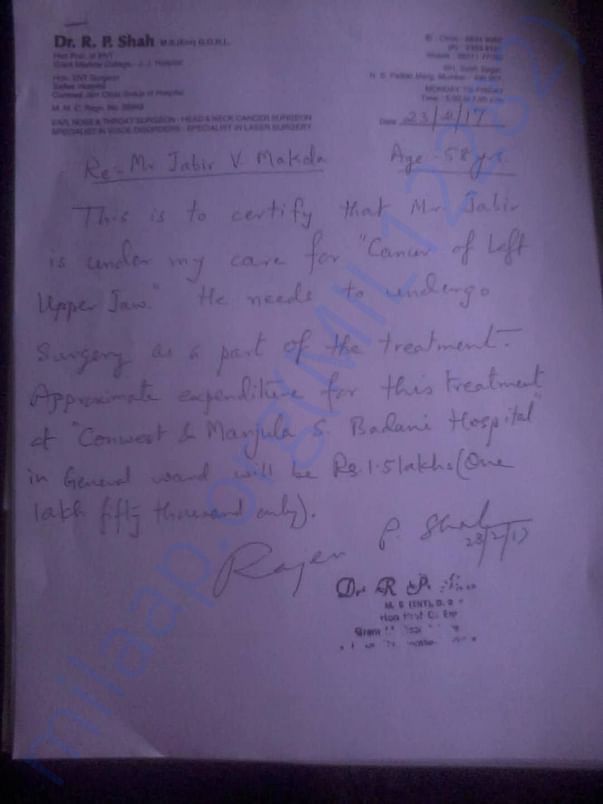 Dr. R. P. Shah M.S.(Ent) D.O.R.L.
Hon. Prof. of ENT
Grant Medical College - J. J. Hospital
Hon. ENT Surgeon
Saifee Hospital
Conwest Jain Clinic Group of Hospital
M. M. C. Regn. No.
EAR, NOSE & THROAT SURGEON - HEAD & NECK CANCER SURGEON
SPECIALIST IN VOICE DISORDERS - SPECIALIST IN LASER SURGERY
MONDAY TO FRIDAY
Date 23/2/17
Re:- Mr Jabir V. Makda Age - 58 yrs.
This is to certify that Mr. Jabir
is under my care for "Cancer of Left
Upper Jaw." He needs to undergo
Surgery as a part of the treatment.
Approximate expenditure for this treatment
at "Conwest & Manjula S. Badani Hospital"
in General ward will be Rs. 1.5 lakhs (One
lakh fifty thousand only).
Rajen P. Shah
23/2/17
Dr. R. P.
M. S (ENT), D.
milaap.org(MIL12232)